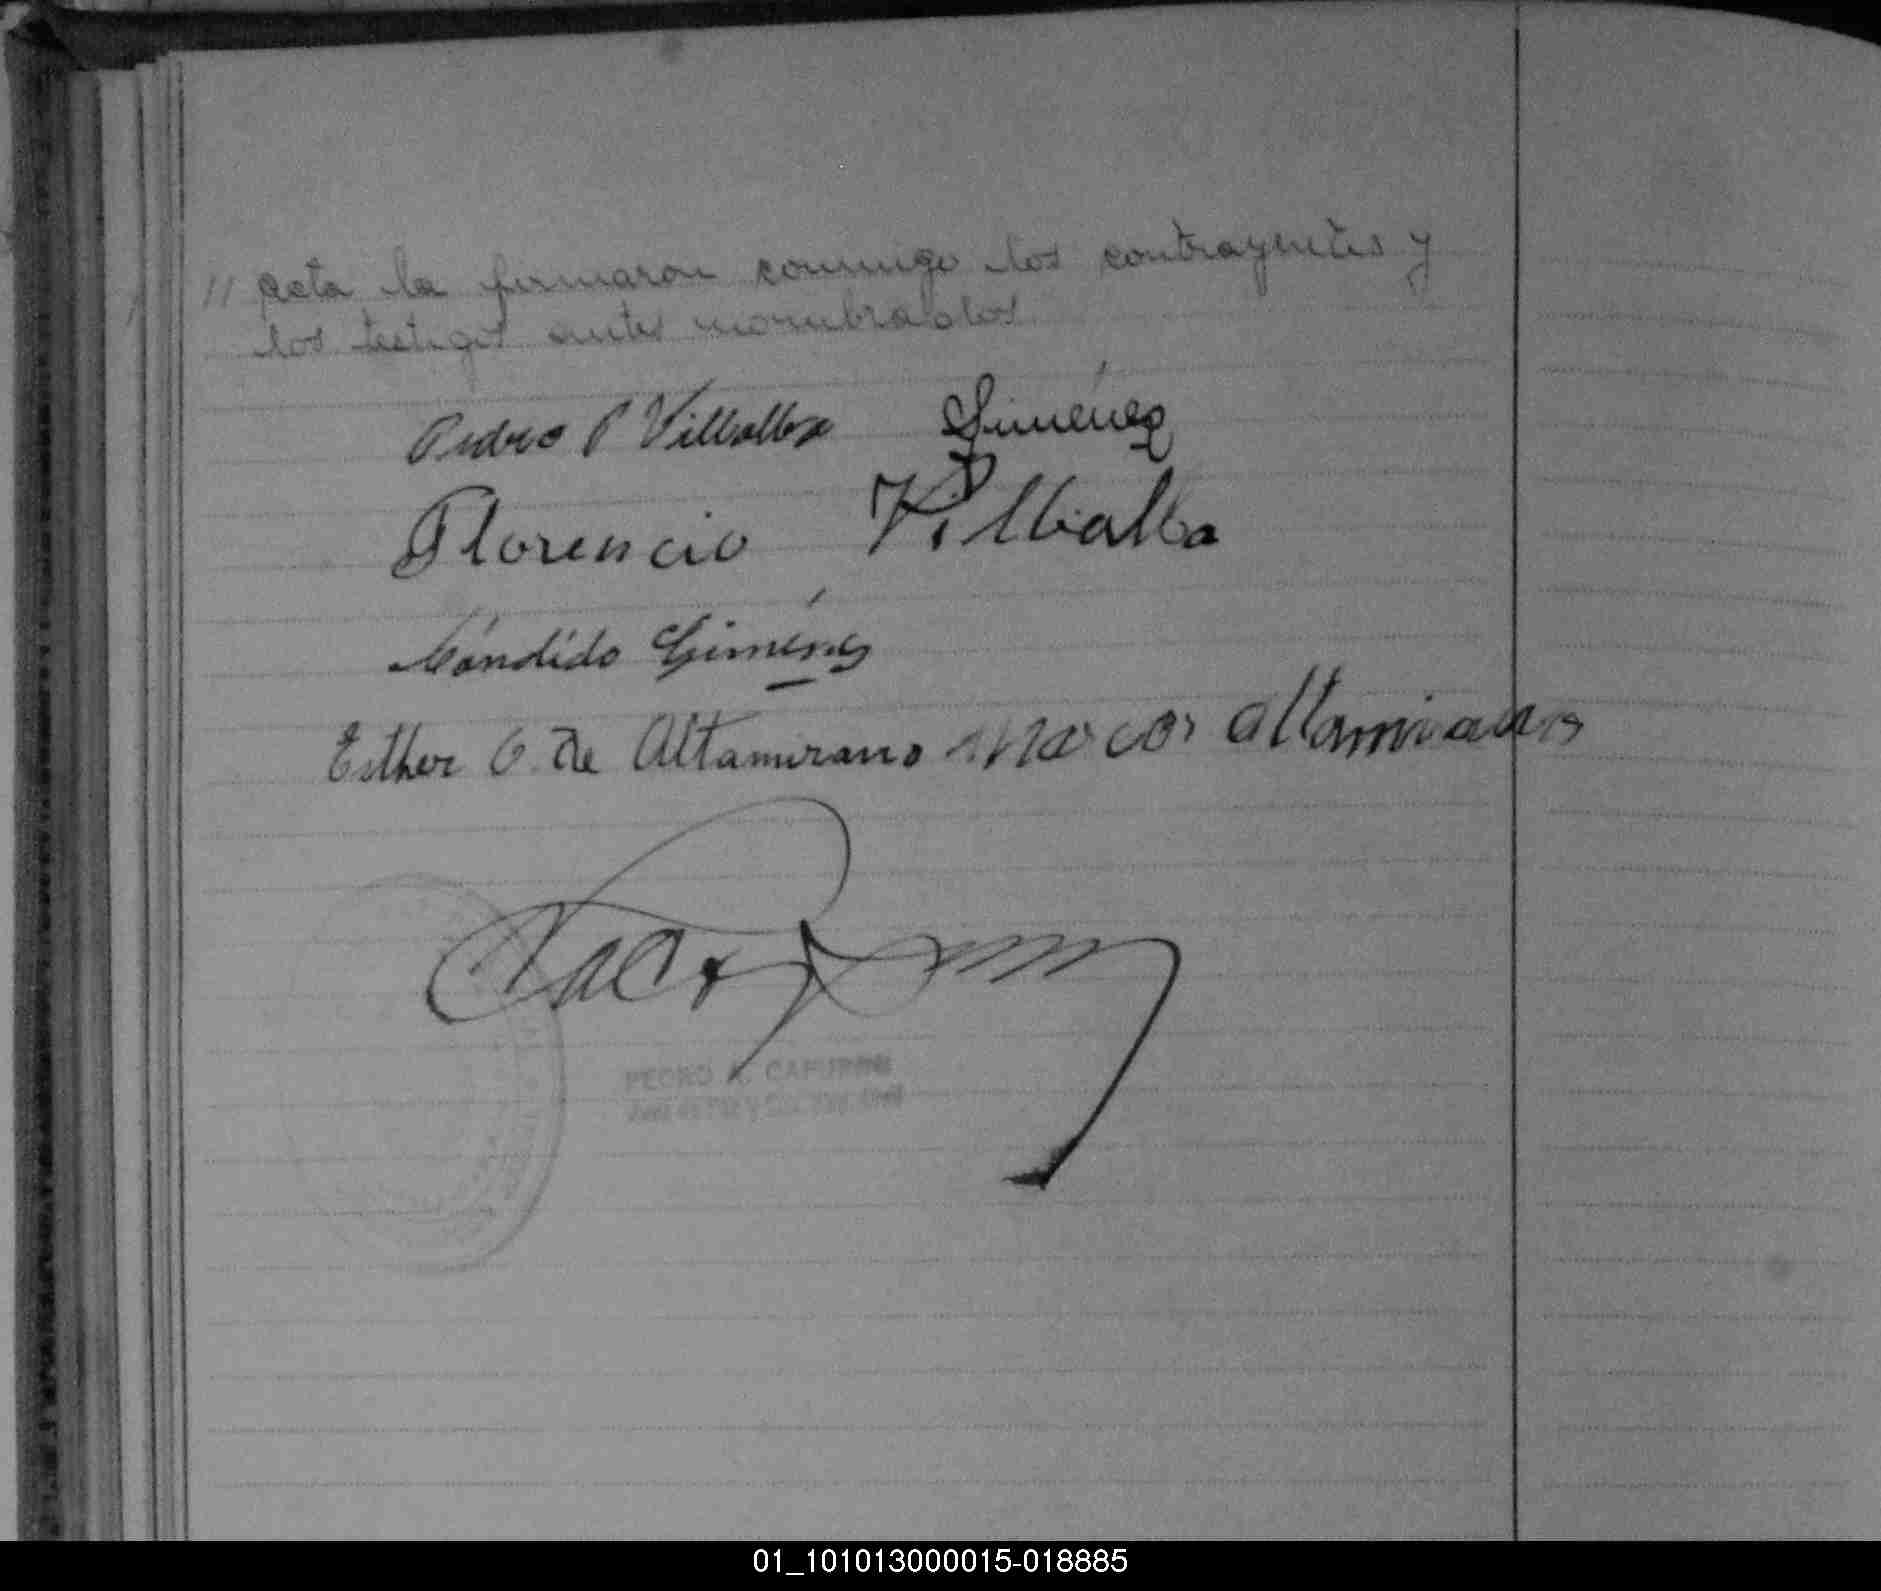 // acta la firmaron conmigo los contrayentes y
los testigos antes nombrados
Pedro P Villalba Giménez
Florencio Villalba
Cándido Giménez
Esther G. de Altamirano Marcos Altamirano
PEDRO A. CAPURRO
01_101013000015-018885